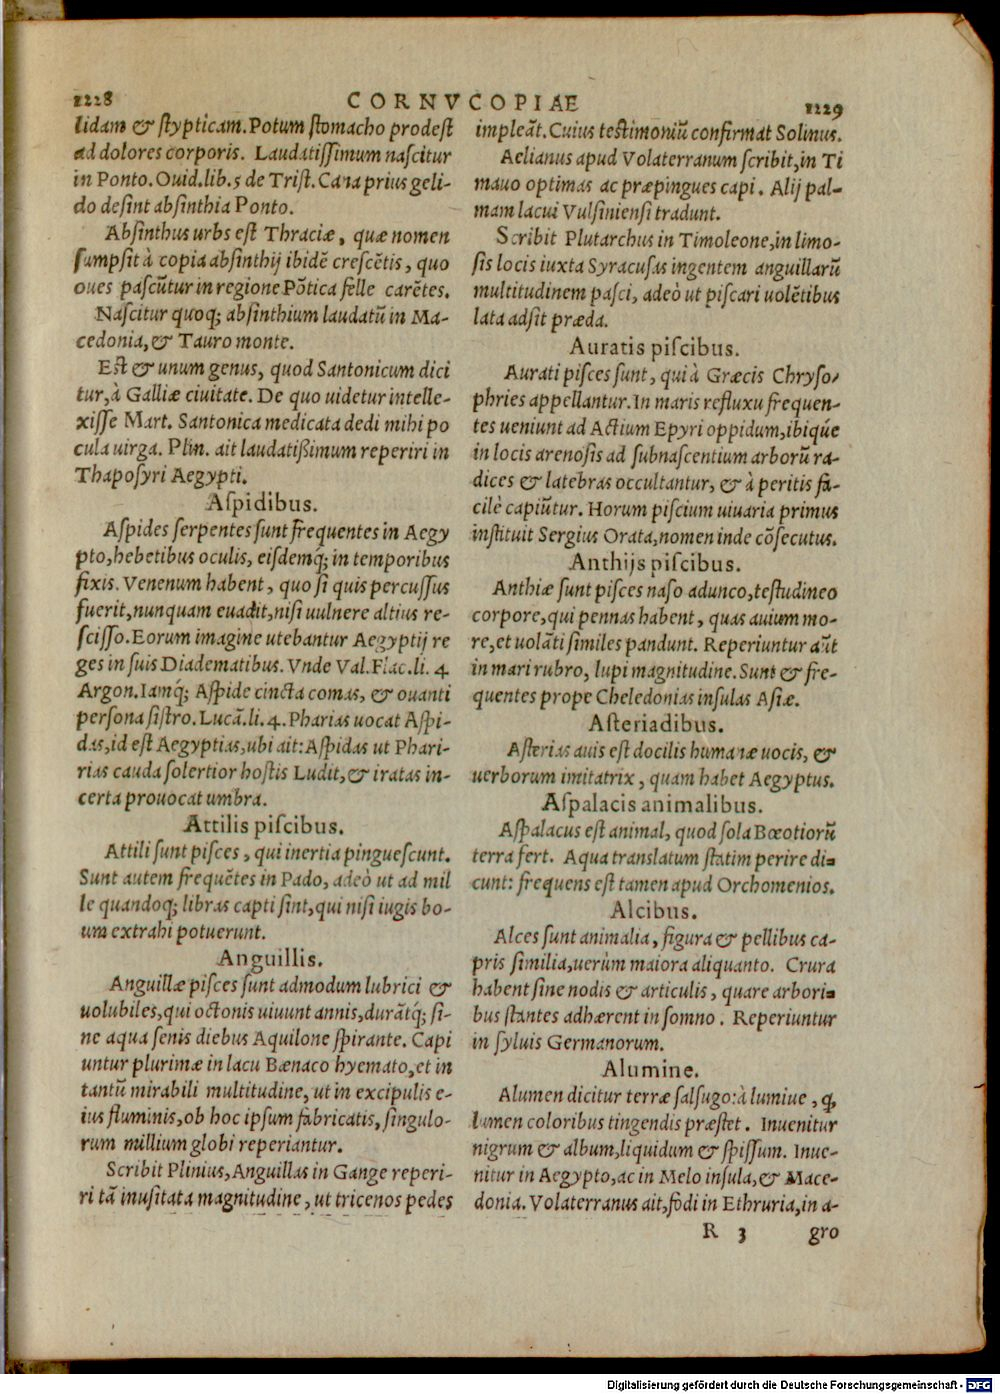 1228
CORNVCOPIAE
1229
lidam & ſtypticam. Potum ſtomacho prodeſt
ad dolores corporis. Laudatiſſimum naſcitur
in Ponto. Ouid. lib. 5 de Triſt. Cana prius geli-
do deſint abſinthia Ponto.
Abſinthus urbs eſt Thraciæ, quæ nomen
ſumpſit à copia abſinthij ibidē creſcētis, quo
oues paſcūtur in regione Pōtica felle carētes.
Naſcitur quoq; abſinthium laudatū in Ma-
cedonia, & Tauro monte.
Eſt & unum genus, quod Santonicum dici
tur, à Galliæ ciuitate. De quo uidetur intelle-
xiſſe Mart. Santonica medicata dedi mihi po
cula uirga. Plin. ait laudatißimum reperiri in
Thapoſyri Aegypti.
Aſpidibus.
Aſpides ſerpentes ſunt frequentes in Aegy
pto, hebetibus oculis, eiſdemq́; in temporibus
fixis. Venenum habent, quo ſi quis percuſſus
fuerit, nunquam euadit, niſi uulnere altius re-
ſciſſo. Eorum imagine utebantur Aegyptij re
ges in ſuis Diadematibus. Vnde Val. Flac. li. 4
Argon. Iamq́; Aſpide cincta comas, & ouanti
perſona ſiſtro. Lucā. li. 4. Pharias uocat Aſpi-
das, id eſt Aegyptias, ubi ait: Aſpidas ut Phari-
rias cauda ſolertior hoſtis Ludit, & iratas in-
certa prouocat umbra.
Attilis piſcibus.
Attili ſunt piſces, qui inertia pingueſcunt.
Sunt autem frequētes in Pado, adeò ut ad mil
le quandoq; libras capti ſint, qui niſi iugis bo-
um extrahi potuerunt.
Anguillis.
Anguillæ piſces ſunt admodum lubrici &
uolubiles, qui octonis uiuunt annis, durātq́; ſi-
ne aqua ſenis diebus Aquilone ſpirante. Capi
untur plurimæ in lacu Bænaco hyemato, et in
tantū mirabili multitudine, ut in excipulis e-
ius fluminis, ob hoc ipſum fabricatis, ſingulo-
rum millium globi reperiantur.
Scribit Plinius, Anguillas in Gange reperi-
ri tā inuſitata magnitudine, ut tricenos pedes
impleāt. Cuius teſtimoniū confirmat Solinus.
Aelianus apud Volaterranum ſcribit, in Ti
mauo optimas ac præpingues capi. Alij pal-
mam lacui Vulſinienſi tradunt.
Scribit Plutarchus in Timoleone, in limo-
ſis locis iuxta Syracuſas ingentem anguillarū
multitudinem paſci, adeò ut piſcari uolētibus
lata adſit præda.
Auratis piſcibus.
Aurati piſces ſunt, qui à Græcis Chryſo-
phries appellantur. In maris refluxu frequen-
tes ueniunt ad Actium Epyri oppidum, ibiq́ue
in locis arenoſis ad ſubnaſcentium arborū ra-
dices & latebras occultantur, & à peritis fa-
cilè capiūtur. Horum piſcium uiuaria primus
inſtituit Sergius Orata, nomen inde cōſecutus.
Anthijs piſcibus.
Anthiæ ſunt piſces naſo adunco, teſtudineo
corpore, qui pennas habent, quas auium mo-
re, et uolāti ſimiles pandunt. Reperiuntur aūt
in mari rubro, lupi magnitudine. Sunt & fre-
quentes prope Cheledonias inſulas Aſiæ.
Aſteriadibus.
Aſterias auis eſt docilis humanæ uocis, &
uerborum imitatrix, quam habet Aegyptus.
Aſpalacis animalibus.
Aſpalacus eſt animal, quod ſola Bœotiorū
terra fert. Aqua translatum ſtatim perire di-
cunt: frequens eſt tamen apud Orchomenios.
Alcibus.
Alces ſunt animalia, figura & pellibus ca-
pris ſimilia, uerùm maiora aliquanto. Crura
habent ſine nodis & articulis, quare arbori-
bus ſtantes adhærent in ſomno. Reperiuntur
in ſyluis Germanorum.
Alumine.
Alumen dicitur terræ ſalſugo: à lumine, q̃
lumen coloribus tingendis præſtet. Inuenitur
nigrum & album, liquidum & ſpiſſum. Inue-
nitur in Aegypto, ac in Melo inſula, & Mace-
donia. Volaterranus ait, fodi in Ethruria, in a-
R 3
gro
Digitalisierung gefördert durch die Deutsche Forschungsgemeinschaft - DFG